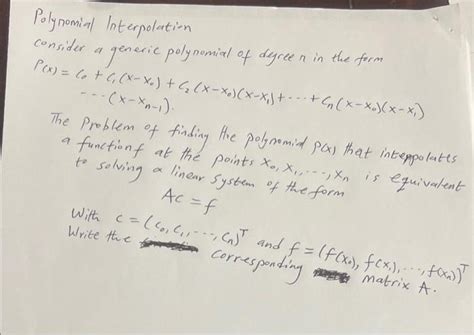 Polynomial Interpolation
consider a generic polynomial of degree n in the form
P(x) = c₀ + c₁(x-x₀) + c₂(x-x₀)(x-x₁) + ··· + cₙ(x-x₀)(x-x₁)
··· (x-xₙ₋₁).
The problem of finding the polynomial p(x) that interpolates
a function f at the points x₀, x₁, ···, xₙ is equivalent
to solving a linear system of the form
Ac = f
With c = (c₀, c₁, ···, cₙ)ᵀ and f = (f(x₀), f(x₁), ···, f(xₙ))ᵀ
Write the corresponding matrix A.